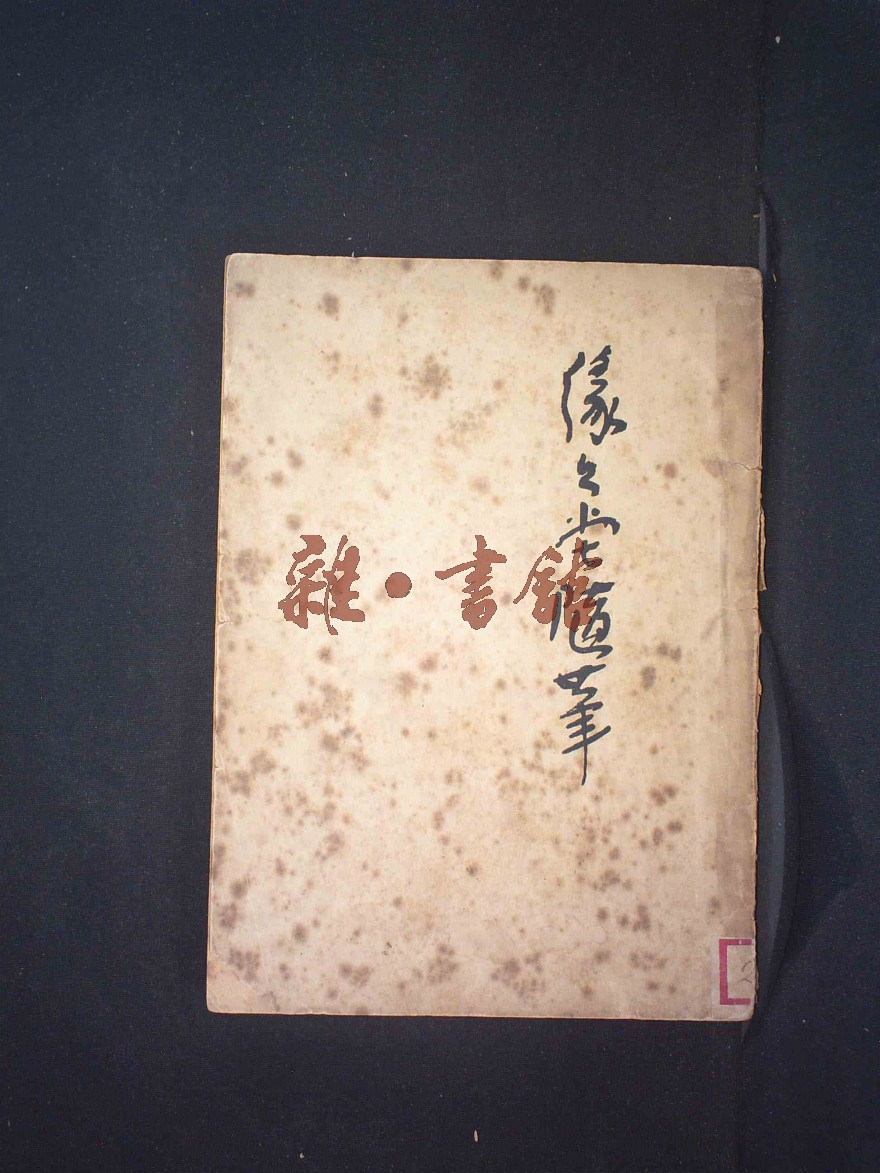 緣々堂隨筆
雜·書館